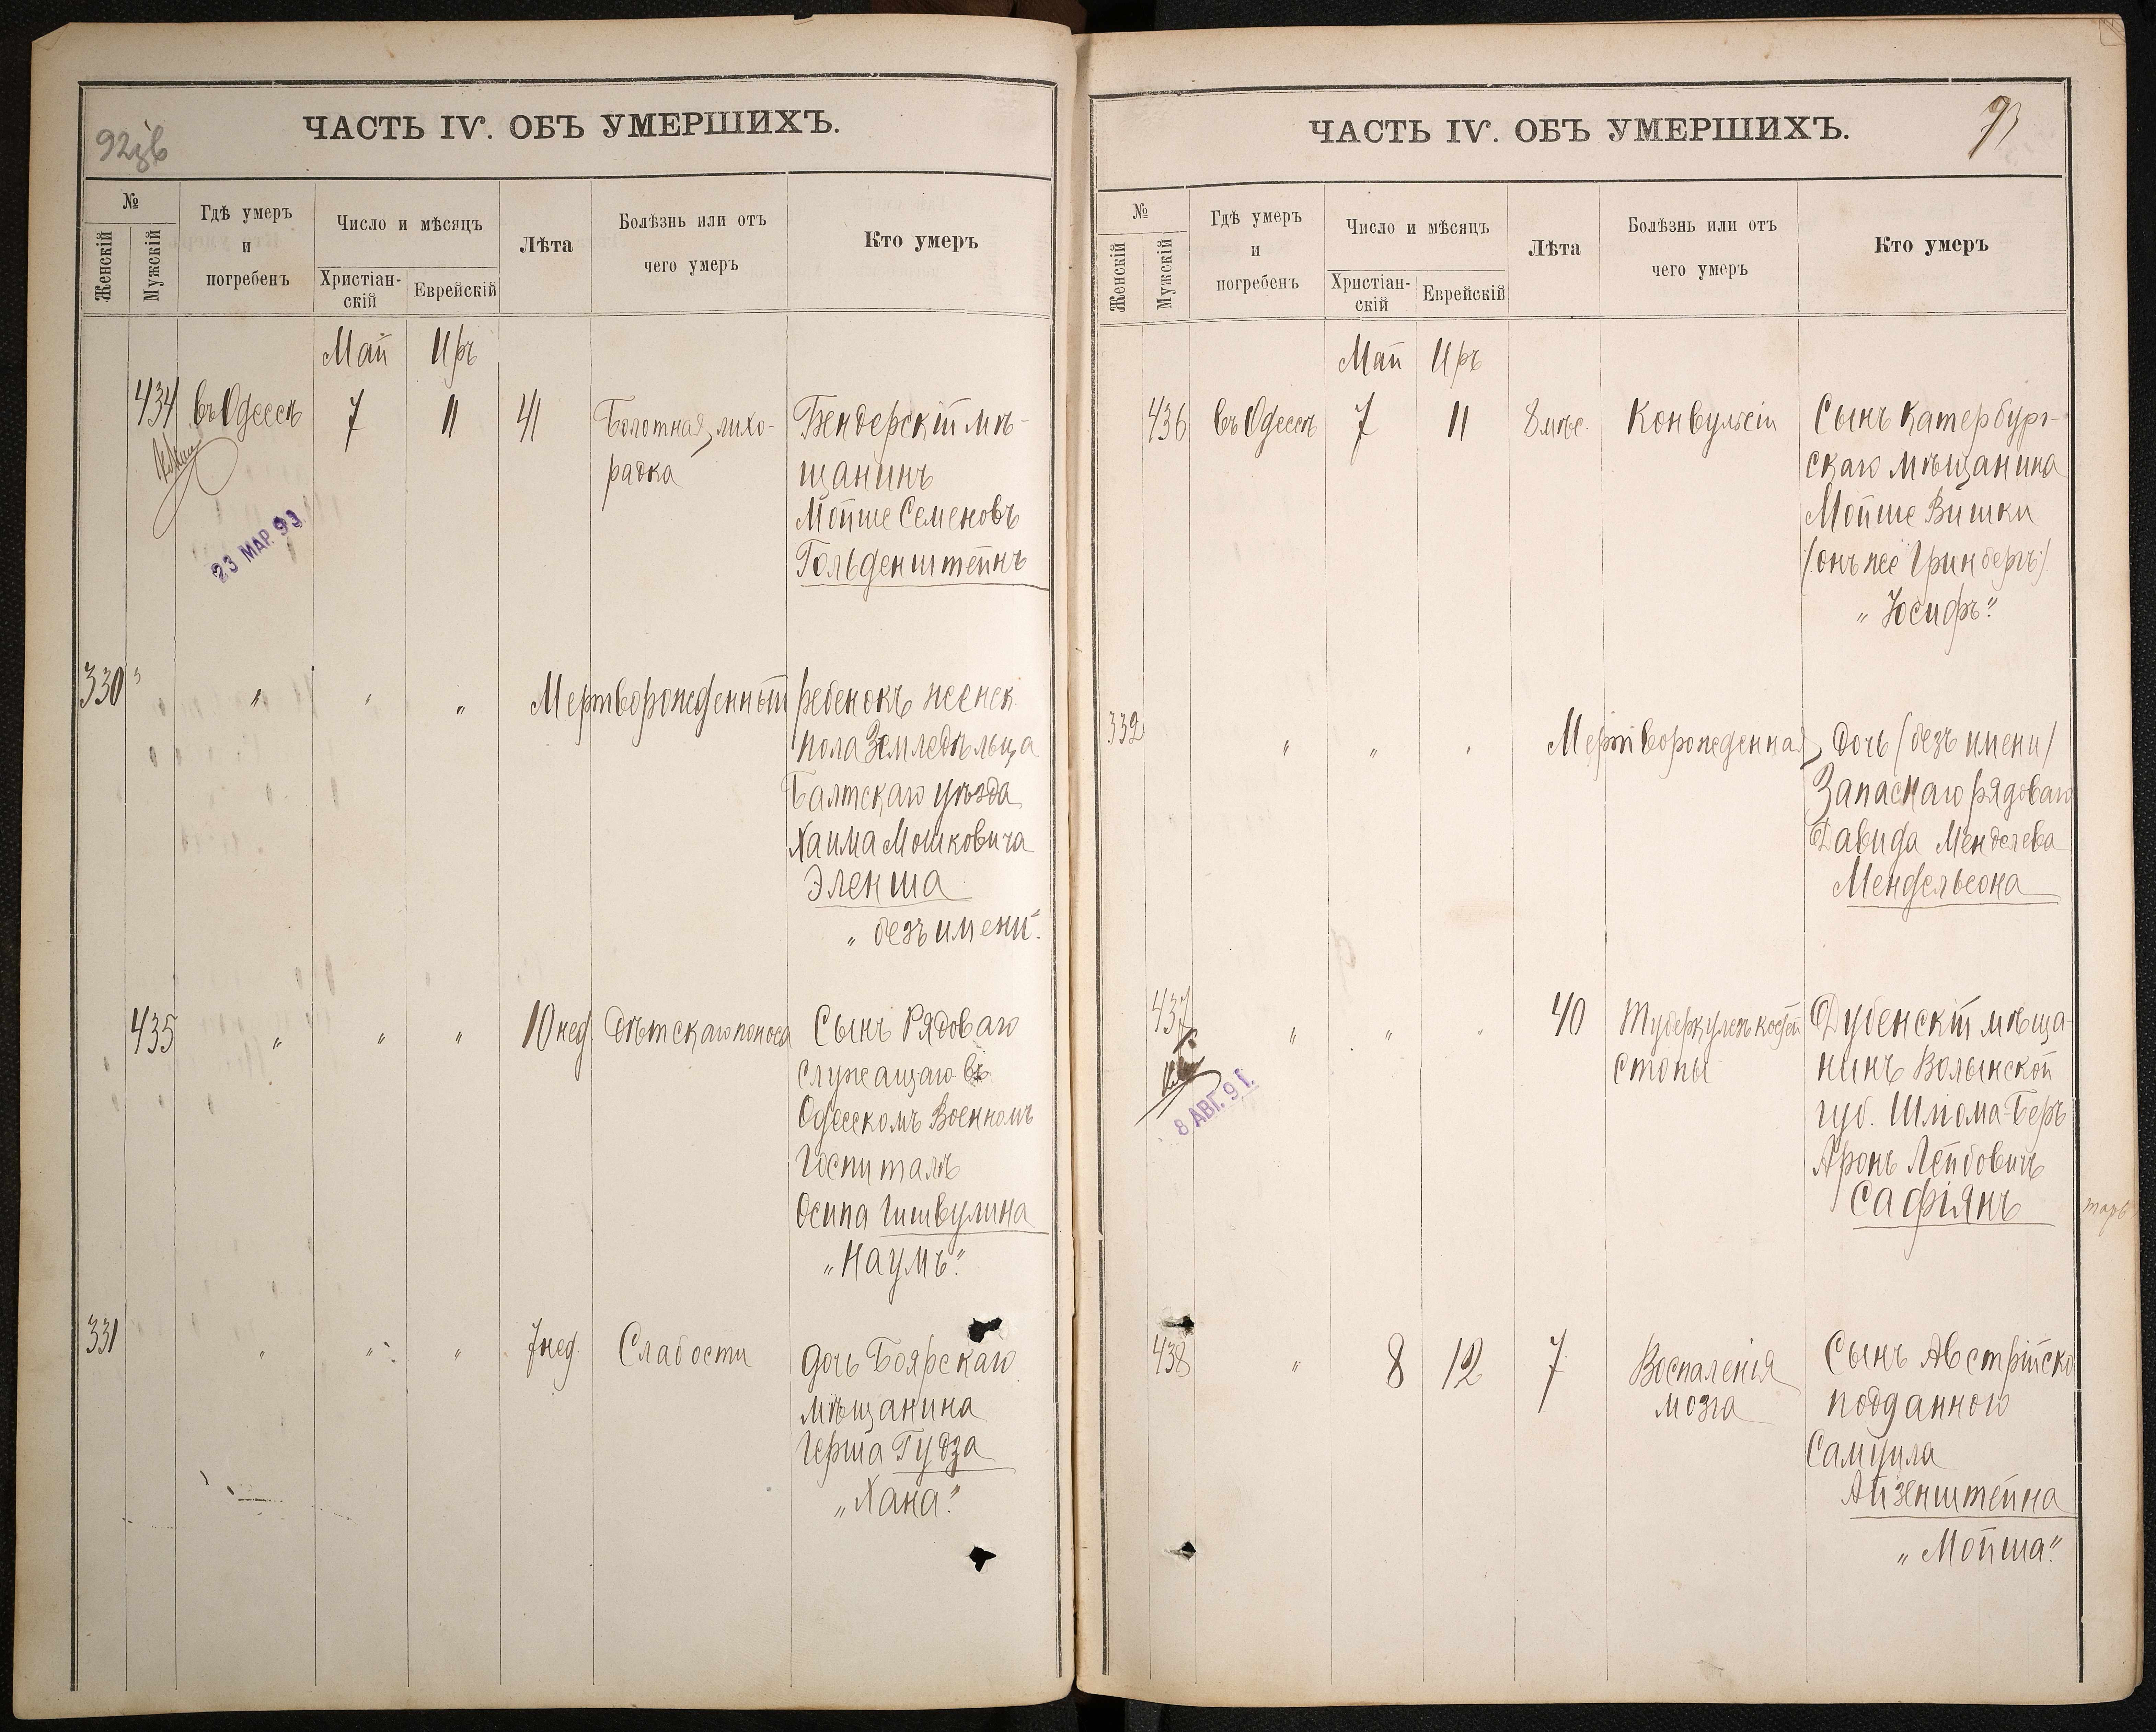 92зв
ЧАСТЬ IV. ОБЪ УМЕРШИХЪ.
№
Женскій
Мужскій
Гдѣ умеръ
и
погребенъ
Число и мѣсяцъ
Христіан-
скій
Еврейскій
Лѣта
Болѣзнь или отъ
чего умеръ
Кто умеръ
Май Иръ
434 въ Одессѣ 7 11 41 Болотная лихо- Бендерскій мѣ-
радка щанинъ
Мойше Семеновъ
Гольденштейнъ
23 МАР. 93
330 " " " " Мертворожденный ребенокъ женск.
пола Земледѣльца
Балтскаго уѣзда
Хаима Мошковича
Эленша
„ безъ имени".
435 " " " 10 нед. Дѣтскаго поноса Сынъ Рядоваго
служащаго въ
Одесскомъ Военномъ
Госпиталѣ
Осипа Гишвулина
„Наумъ".
331 " " " 7 нед. Слабости дочь Боярскаго
мѣщанина
Герша Гудза
„Хана".
93
ЧАСТЬ IV. ОБЪ УМЕРШИХЪ.
№
Женскій
Мужскій
Гдѣ умеръ
и
погребенъ
Число и мѣсяцъ
Христіан-
скій
Еврейскій
Лѣта
Болѣзнь или отъ
чего умеръ
Кто умеръ
Май Иръ
436 въ Одессѣ 7 11 8 мѣс. Конвульсіи Сынъ Катербург-
скаго мѣщанина
Мойше Вишки
/онъ же Гринбергъ/.
„ Юсифъ".
332 " " " Мертворожденная дочь /безъ имени/
Запаснаго рядоваго
Давида Менделева
Мендельсона
437 " " " 40 Туберкулезъ костей Дубенскій мѣща-
стопы нинъ Волынской
губ. Шлома-Беръ
Аронъ Лейбовичъ
Сафіянъ
8 АВГ. 91.
438 " 8 12 7 Воспаленія Сынъ Австрійско
мозга подданного
Самуила
Айзенштейна
„ Мойша".